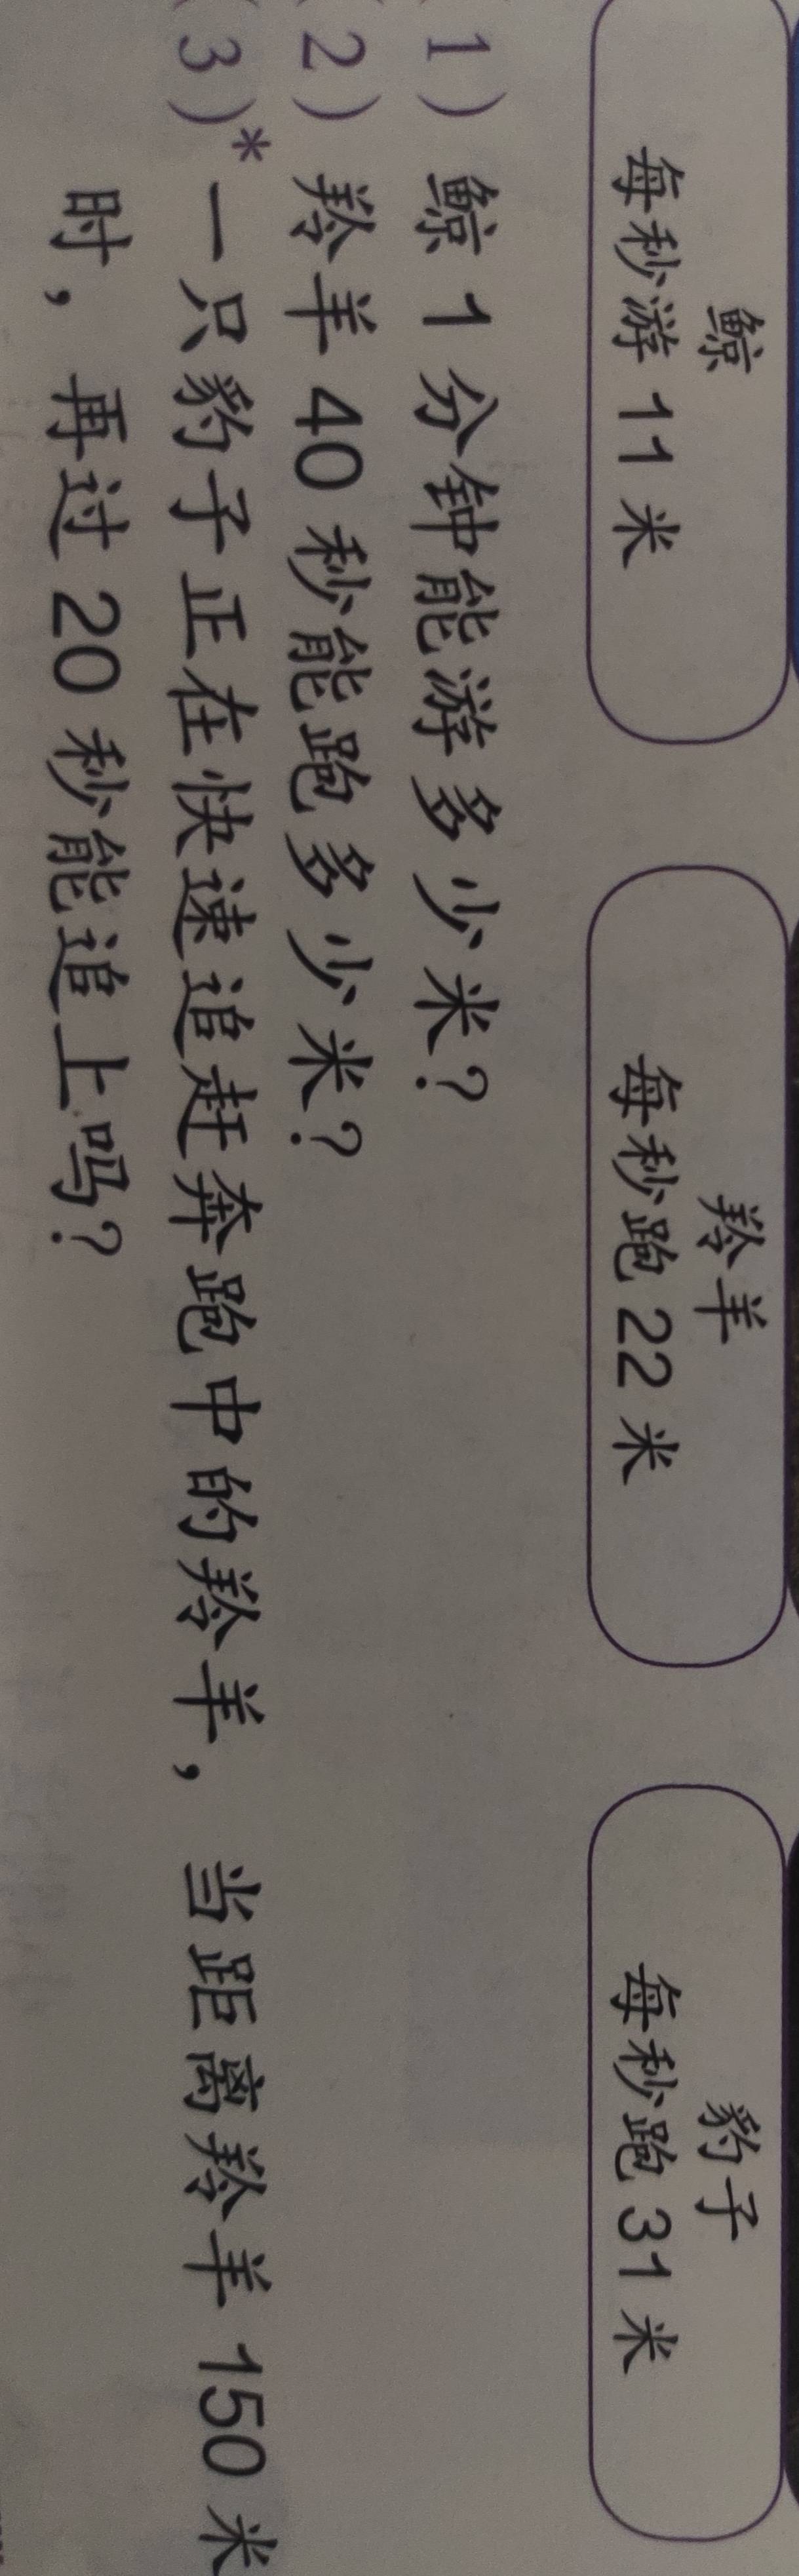 鲸
每秒游 11 米
羚羊
每秒跑 22 米
豹子
每秒跑 31 米
(1) 鲸 1 分钟能游多少米？
(2) 羚羊 40 秒能跑多少米？
(3)* 一只豹子正在快速追赶奔跑中的羚羊，当距离羚羊 150 米
时，再过 20 秒能追上吗？